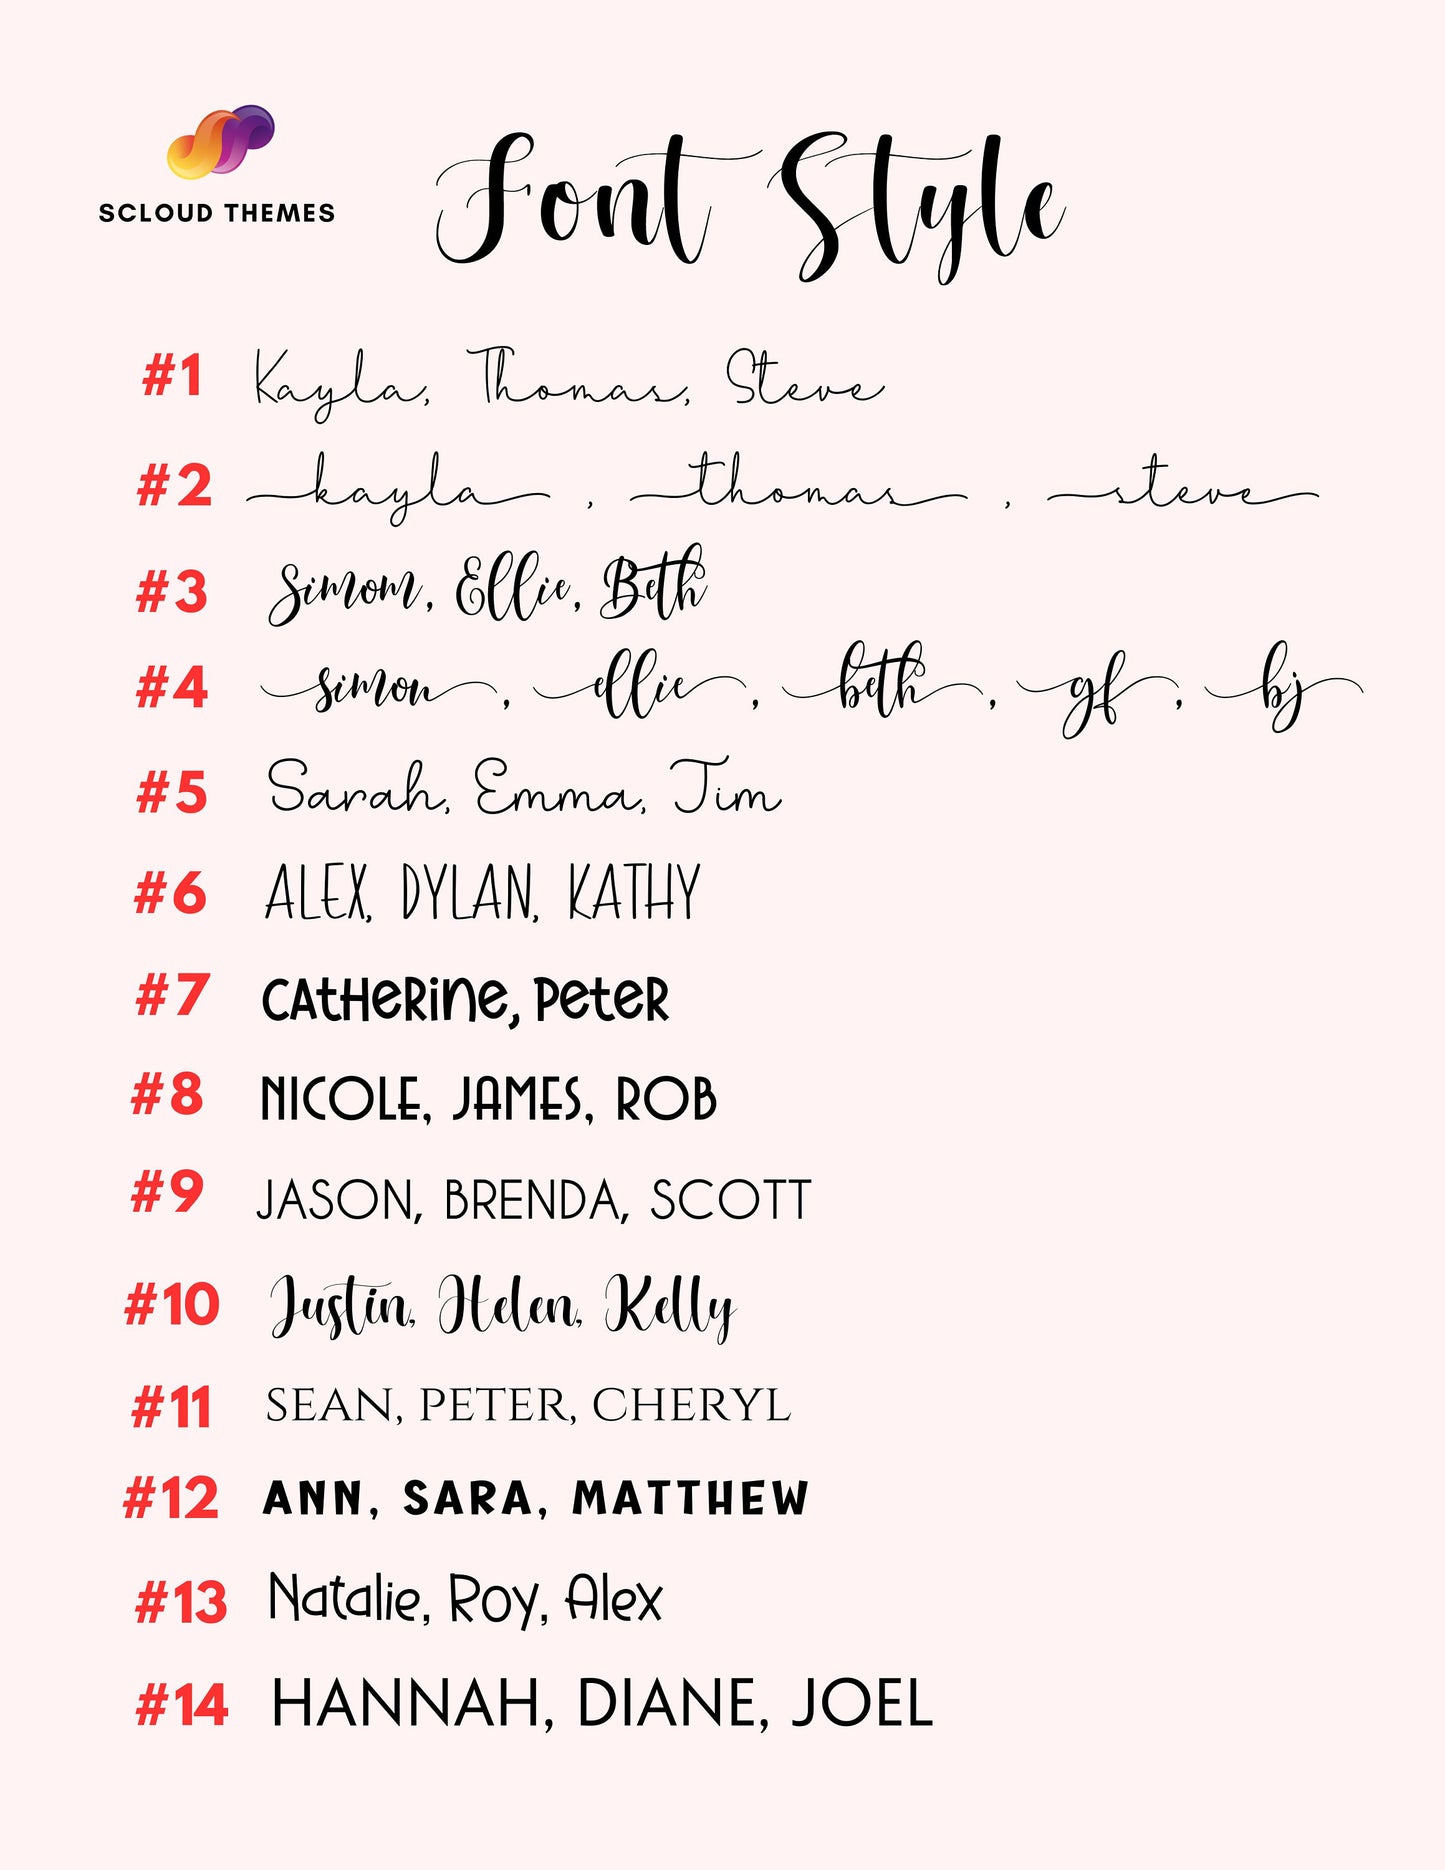 SCLOUD THEMES
Font Style
#1 Kayla, Thomas, Steve
#2 kayla , thomas , steve
#3 Simom, Ellie, Beth
#4 simon , ellie , beth , gf , bj
#5 Sarah, Emma, Tim
#6 ALEX, DYLAN, KATHY
#7 CAtHeRine, PeteR
#8 NICOLE, JAMES, ROB
#9 JASON, BRENDA, SCOTT
#10 Justin, Helen, Kelly
#11 SEAN, PETER, CHERYL
#12 ANN, SARA, MATTHEW
#13 Natalie, Roy, Alex
#14 HANNAH, DIANE, JOEL